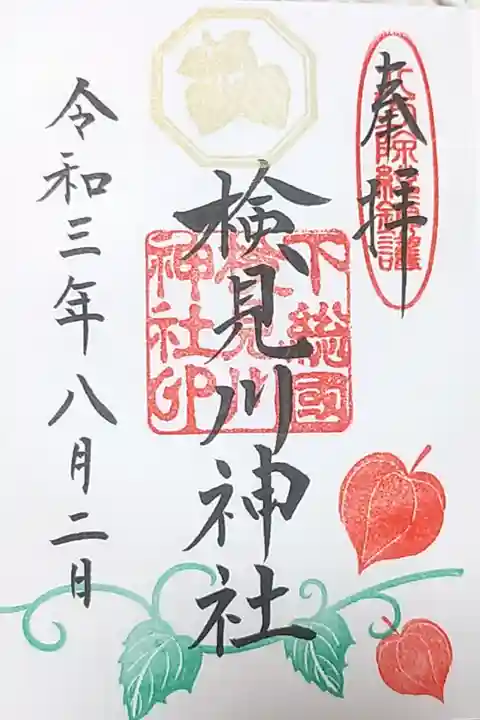 奉拝
検見川神社
下総國
検見川
神社印
令和三年八月二日